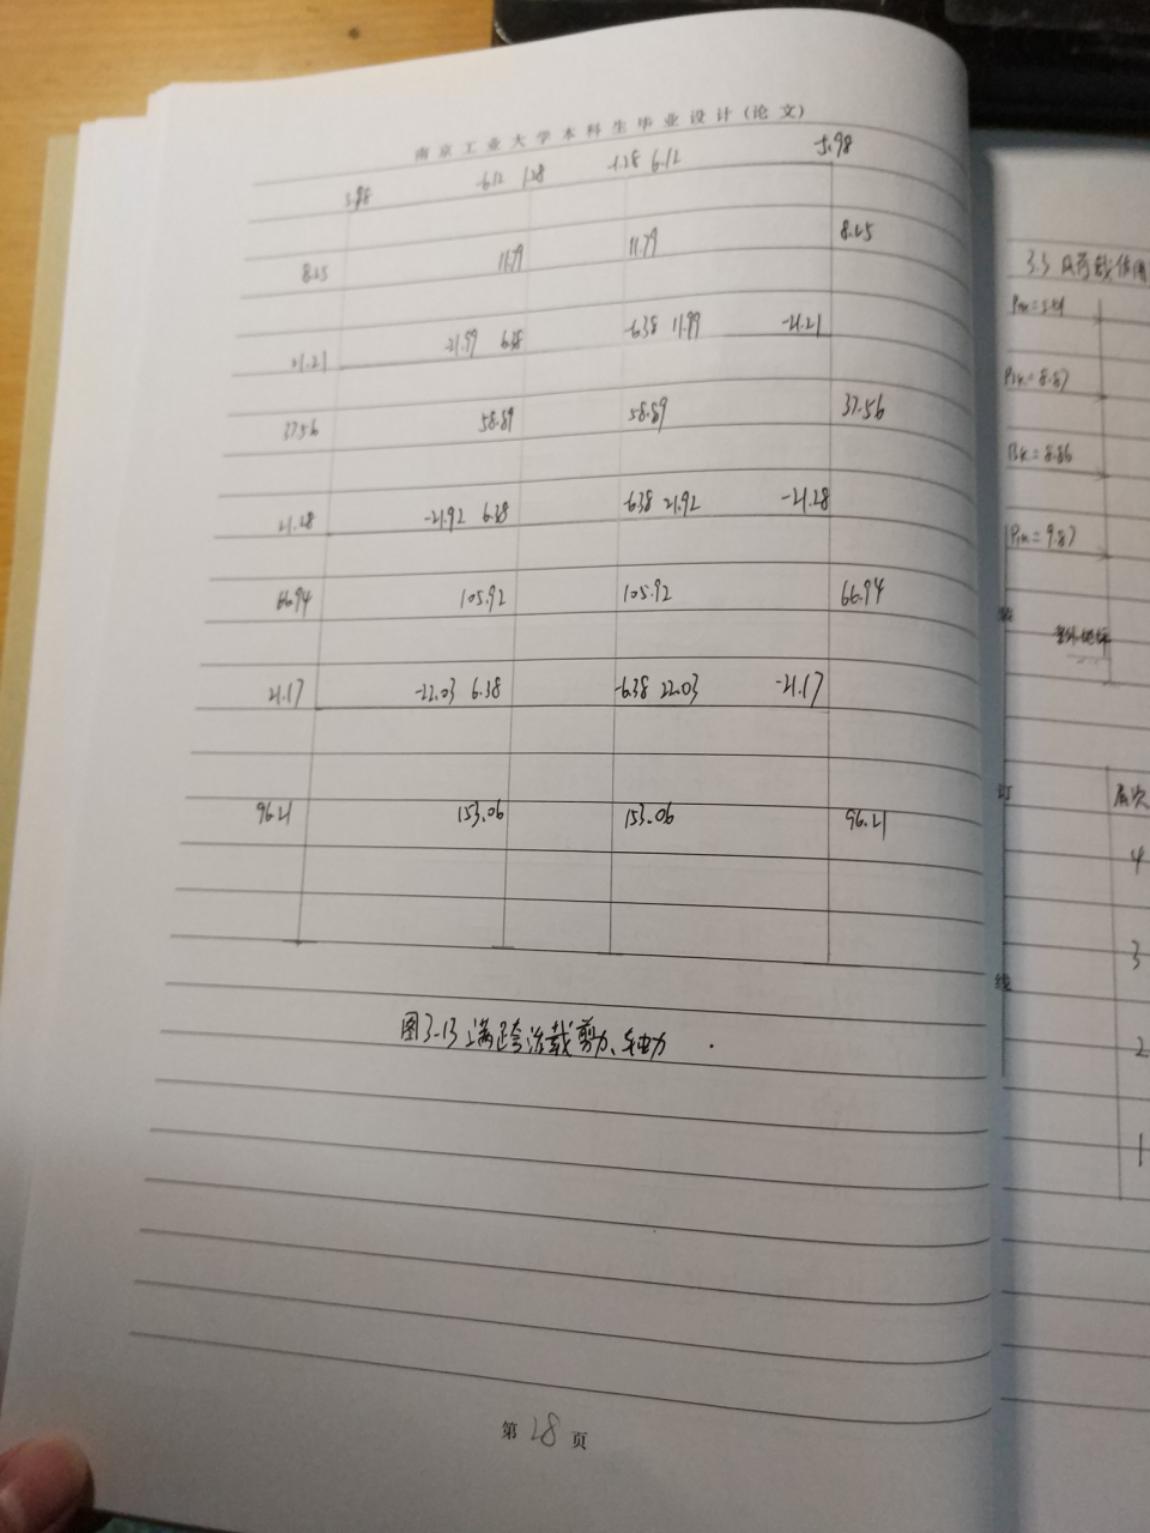 南京工业大学本科生毕业设计(论文)
-6.12 1.28 -1.28 6.12 5.98
8.25 11.79 11.79 8.25
21.21 6.38 -6.38 -21.21
37.56 58.89 58.89 37.56
21.28 -21.92 6.38 -6.38 21.92 -21.28
66.94 105.92 105.92 66.94
21.17 -22.03 6.38 -6.38 22.03 -21.17
96.21 153.06 153.06 96.21
图3-13 满跨活载剪力、轴力
第 28 页
3.3 风荷载作用
P2k=8.86
P1k=9.87
室外地坪
装
订
线
层次
4
3
2
1